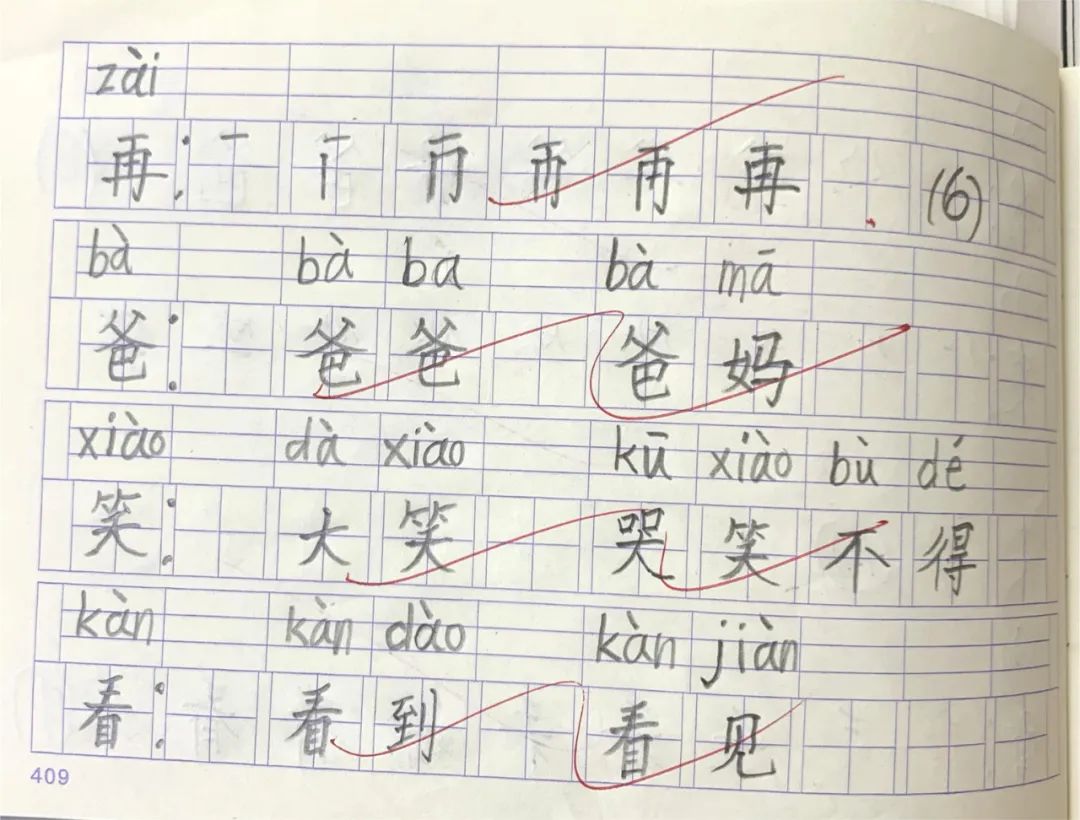 zài
再: 一 丅 冂 再 再 再 (6)
bà bà ba bà mā
爸: 爸爸 爸妈
xiào dà xiào kū xiào bù dé
笑: 大笑 哭笑不得
kàn kàn dào kàn jiàn
看: 看到 看见
409